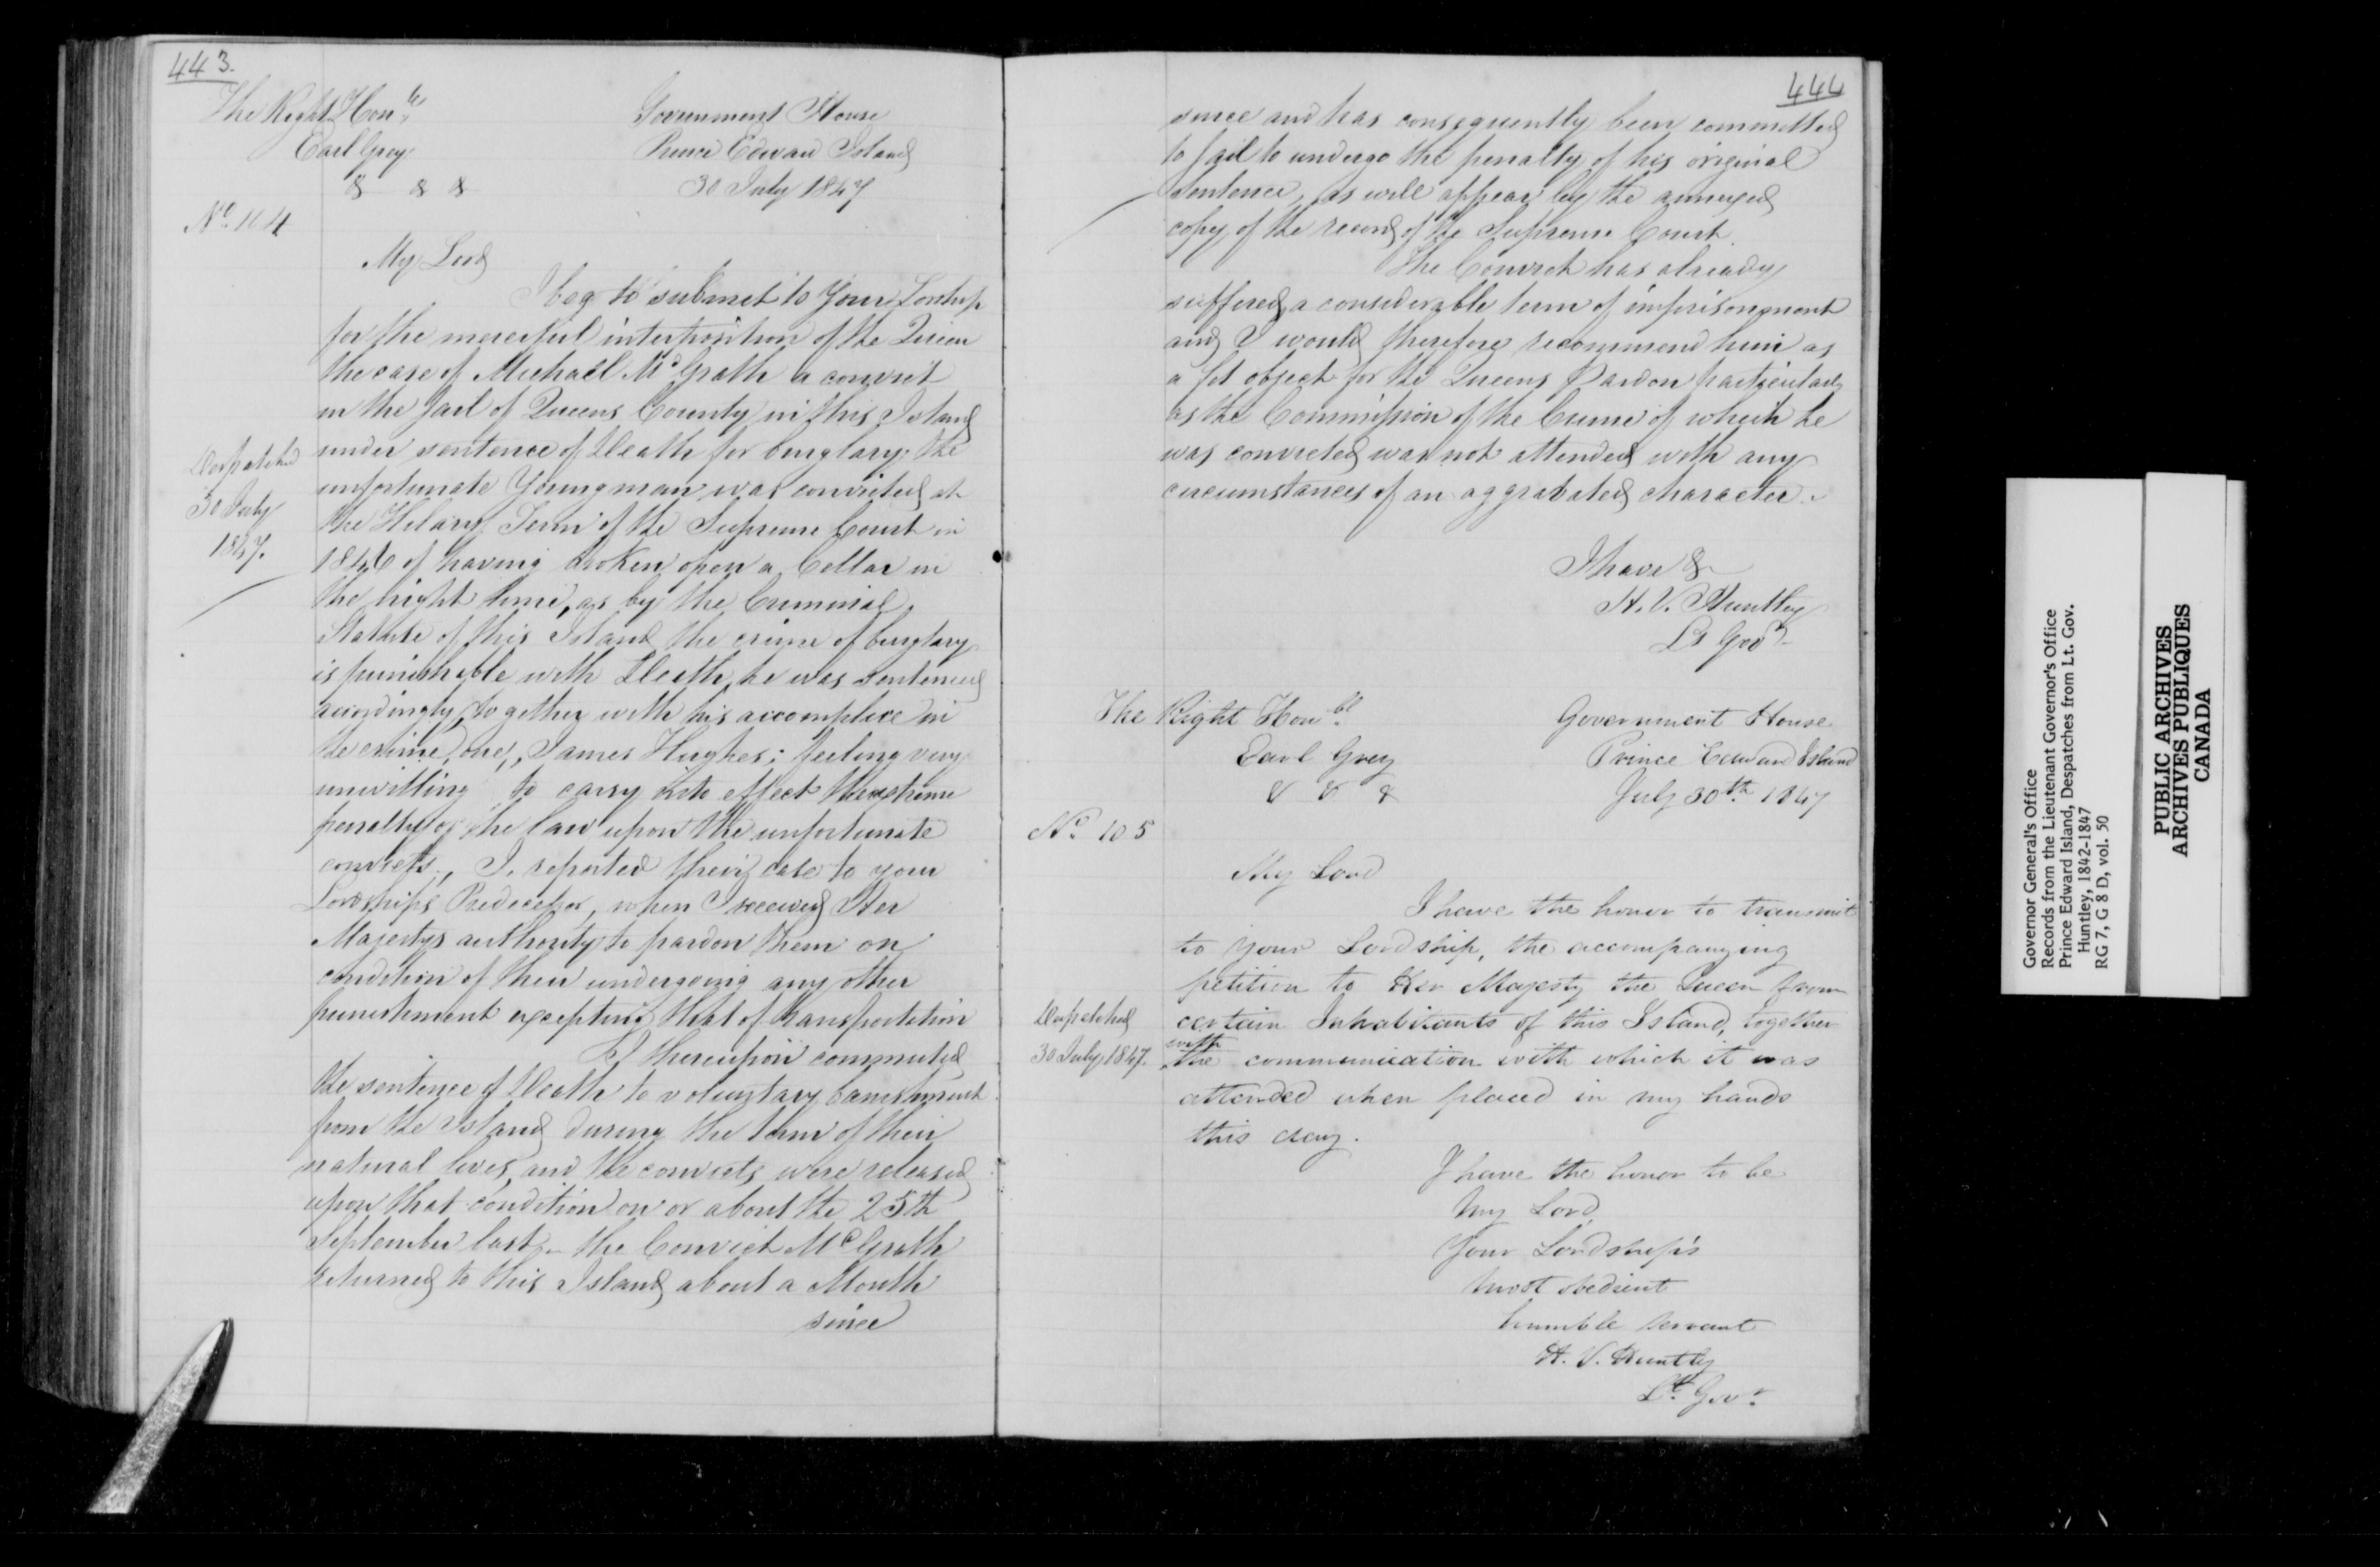 443.
The Right Honble
Earl Grey
& & &
Government House
Prince Edward Island
30 July 1847
No. 104
My Lord
I beg to submit to Your Lordship
for the merciful interposition of the Queen
the case of Michael McGrath a convict
in the Jail of Queens County in this Island
under sentence of Death for burglary; the
unfortunate Young man was convicted at
the Hilary Term of the Supreme Court in
1846 of having broken open a Cellar in
the night time, as by the Criminal
Statute of this Island the crime of burglary
is punishable with Death, he was sentenced
accordingly, together with his accomplice in
the crime, one, James Hughes; feeling very
unwilling to carry into effect the extreme
penalty of the law upon the unfortunate
convicts, I reported their case to your
Lordships Predecessor, when I received Her
Majestys authority to pardon them on
condition of their undergoing any other
punishment excepting that of transportation
I thereupon commuted
the sentence of Death to voluntary banishment
from the Island during the term of their
natural lives, and the convicts were released
upon that condition on or about the 25th
September last. the Convict McGrath
returned to this Island about a Month
since
Despatched
30 July
1847.
444
since and has consequently been committed
to jail to undergo the penalty of his original
sentence, as will appear by the annexed
copy of the record of the Supreme Court.
The Convict has already
suffered a considerable term of imprisonment
and I would therefore recommend him as
a fit object for the Queens Pardon particularly
as the Commission of the Crime of which he
was convicted was not attended with any
circumstances of an aggravated character.
I have &
H. V. Huntley
Lt Govr
The Right Honble
Earl Grey
& & &
Government House
Prince Edward Island
July 30th 1847
No. 105
My Lord
I have the honor to transmit
to your Lordship, the accompanying
petition to Her Majesty the Queen from
certain Inhabitants of this Island, together
with
the communication with which it was
attended when placed in my hands
this day.
Despatched
30 July 1847.
I have the honor to be
My Lord
Your Lordship's
most obedient
humble servant
H. V. Huntley
Lt. Govr.
Governor General's Office
Records from the Lieutenant Governor's Office
Prince Edward Island, Despatches from Lt. Gov.
Huntley, 1842-1847
RG 7, G 8 D, vol. 50
PUBLIC ARCHIVES
ARCHIVES PUBLIQUES
CANADA